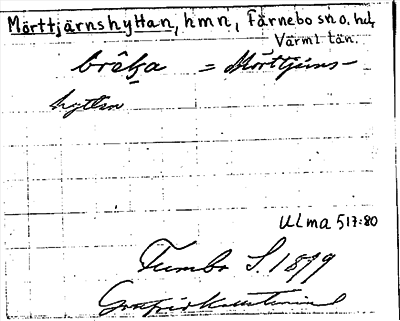 Mörttjärnshyttan, hmn, Färnebo sn o. hd,
Värml. län.
brêka = Mörttjärns-
hyttan
ULMA 517:80
Tumbo S. 1899